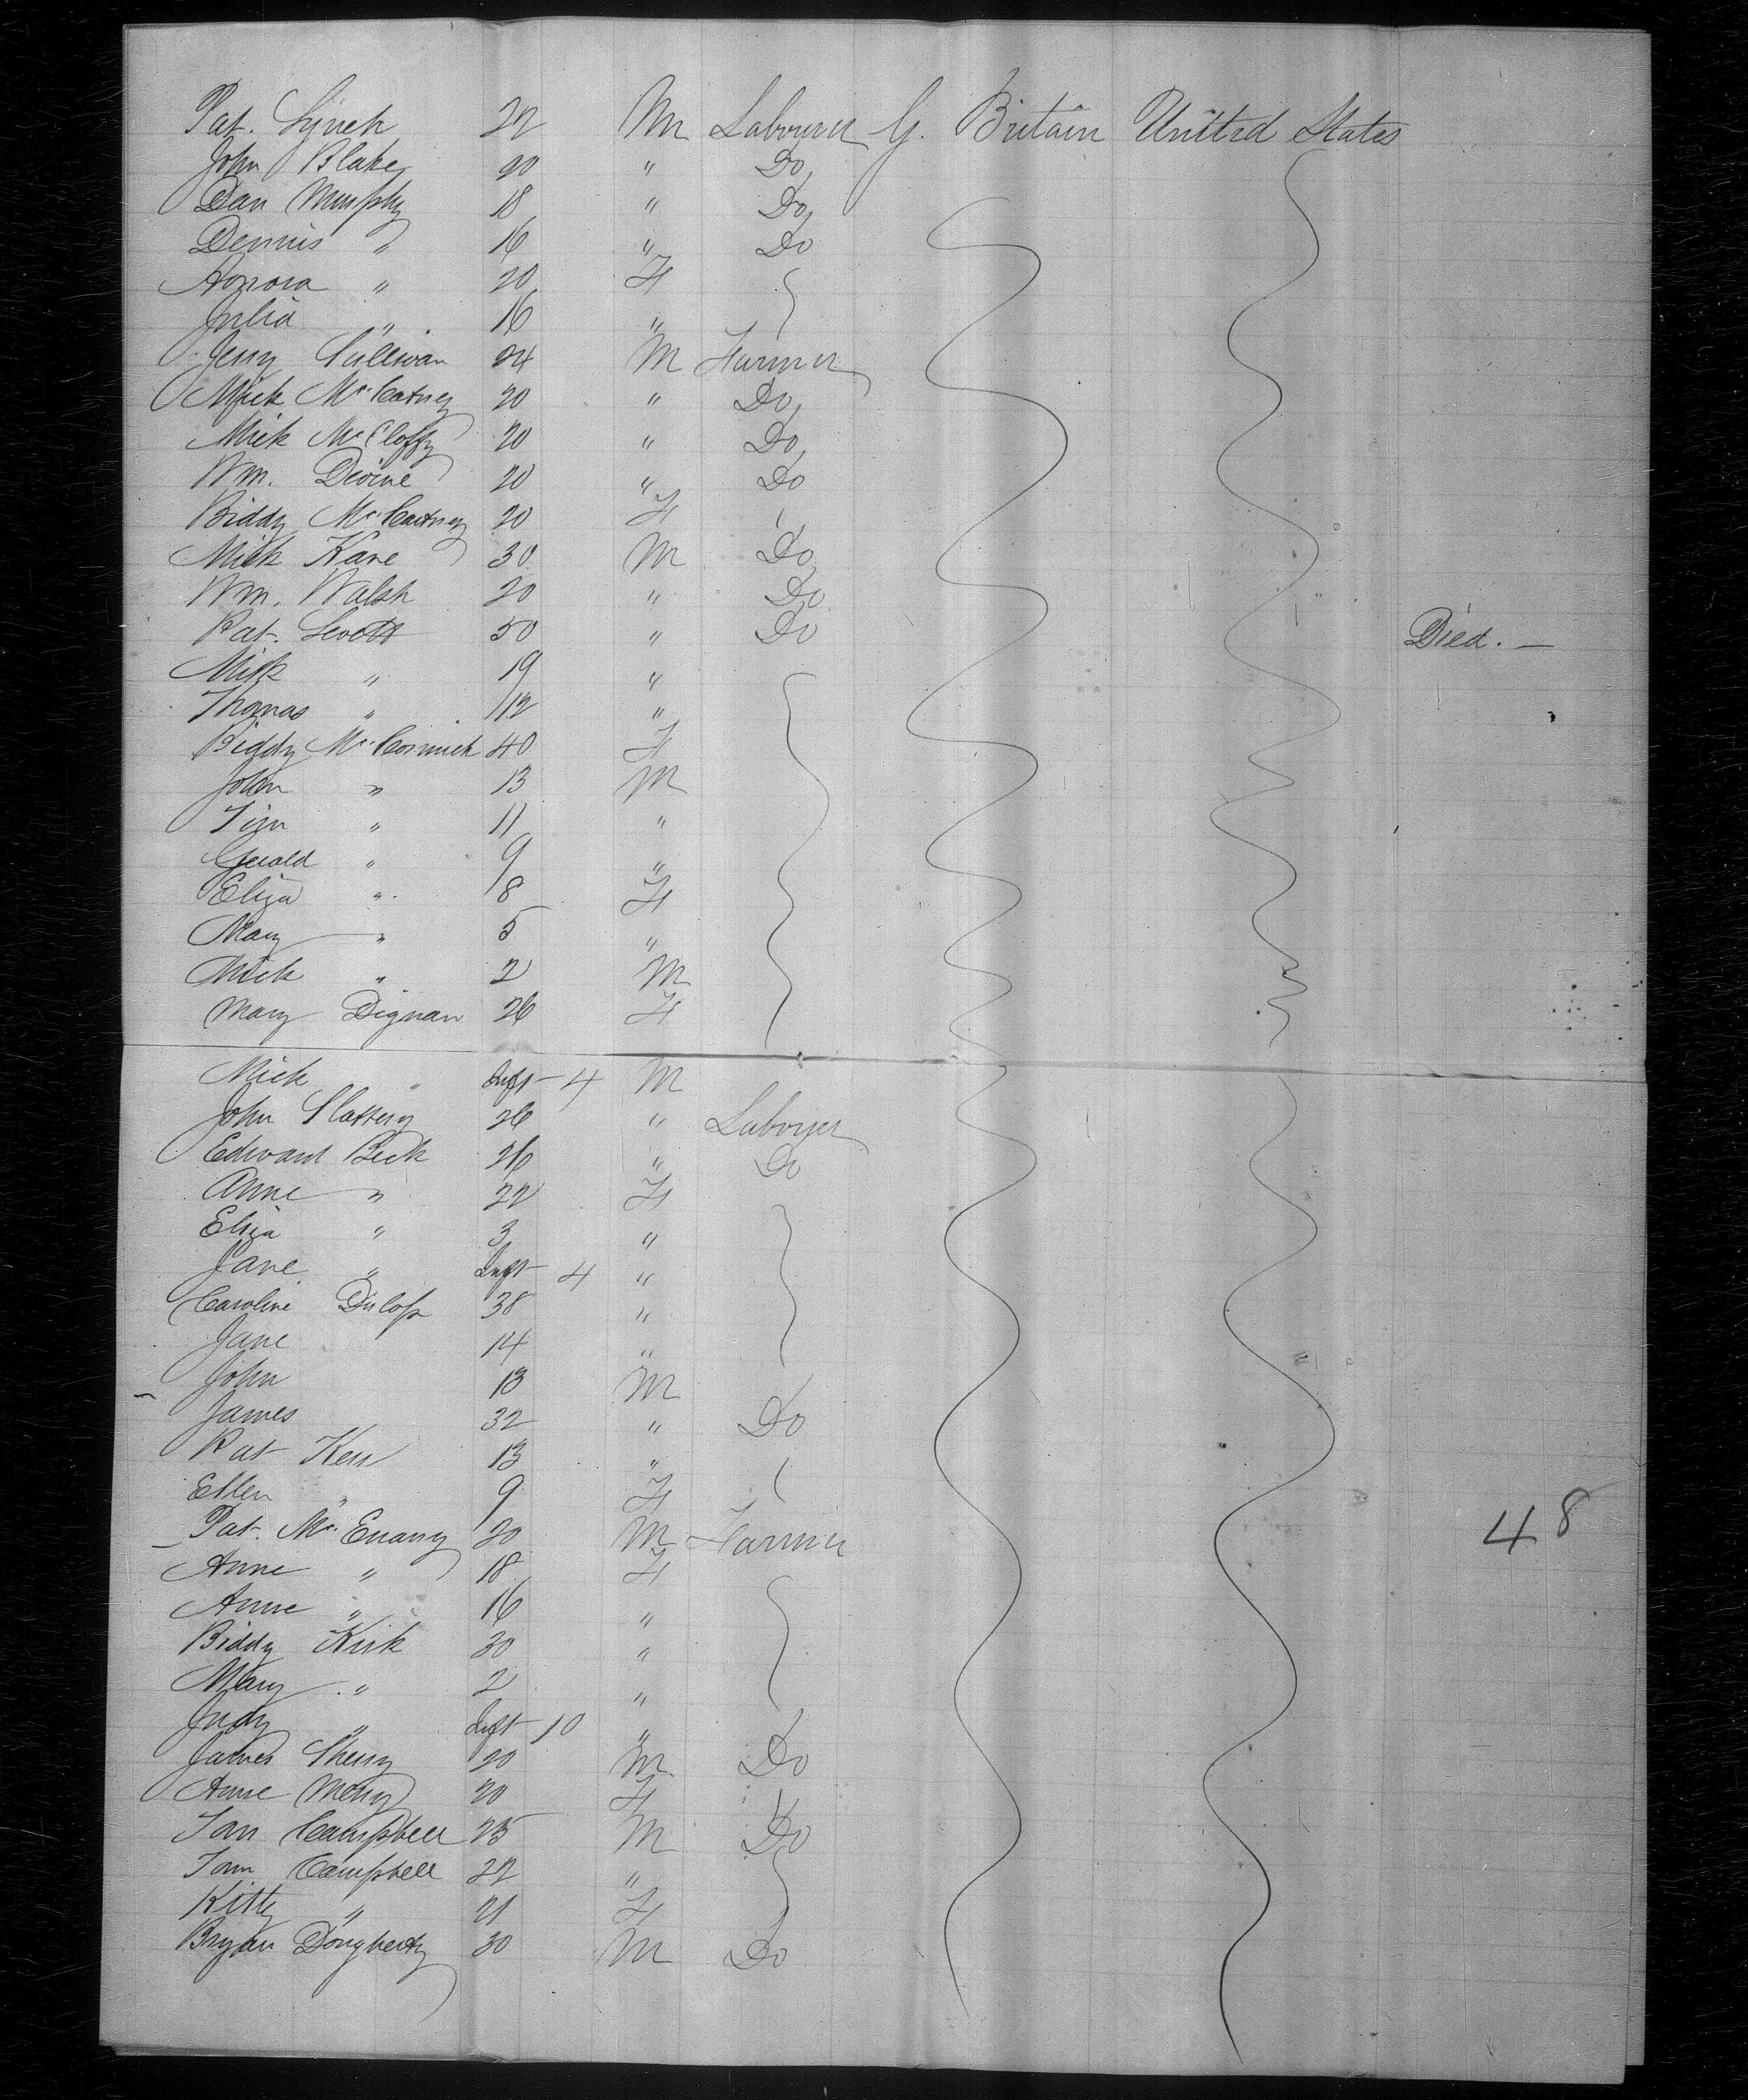 Pat. Lynch 22 M Labourer G. Britain United States
John Blake 20 " Do
Dan Murphy 18 " Do
Dennis " 16 " Do
Honora " 20 F
Julia " 16 "
Jerry Sullivan 24 M Farmer
Mick McCartney 20 " Do
Mick 20 " Do
Wm. Devine 20 " Do
Biddy McCartney 20 F
Mick Kane 30 M Do
Wm. Walsh 20 " Do
Pat. 50 " Do Died. —
Mick " 19 "
Thomas " 12 "
Biddy McCormick 40 F
John " 13 M
Tim " 11 "
Gerald " 9 "
Eliza " 8 F
Mary " 5 "
Mick " 2 M
Mary Dignan 26 F
Mick " Inft — 4 M
John Slattery 26 " Labourer
Edward Beck 26 " Do
Anne " 22 F
Eliza " 3 "
Jane " Inft — 4 "
Caroline 38 "
Jane 14 "
John 13 M
James 32 " Do
Pat Kerr 13 "
Ellen " 9 F
Pat. McEnarny 20 M Farmer 48
Anne " 18 F
Anne " 16 "
Biddy Kirk 30 "
Mary " 2 "
Judy " Inft — 10 "
James Sherry 20 M Do
Anne Merry 20 F
Ian Campbell 25 M Do
Tom Campbell 22 "
Kitty " 21 F
Bryan Dougherty 30 M Do